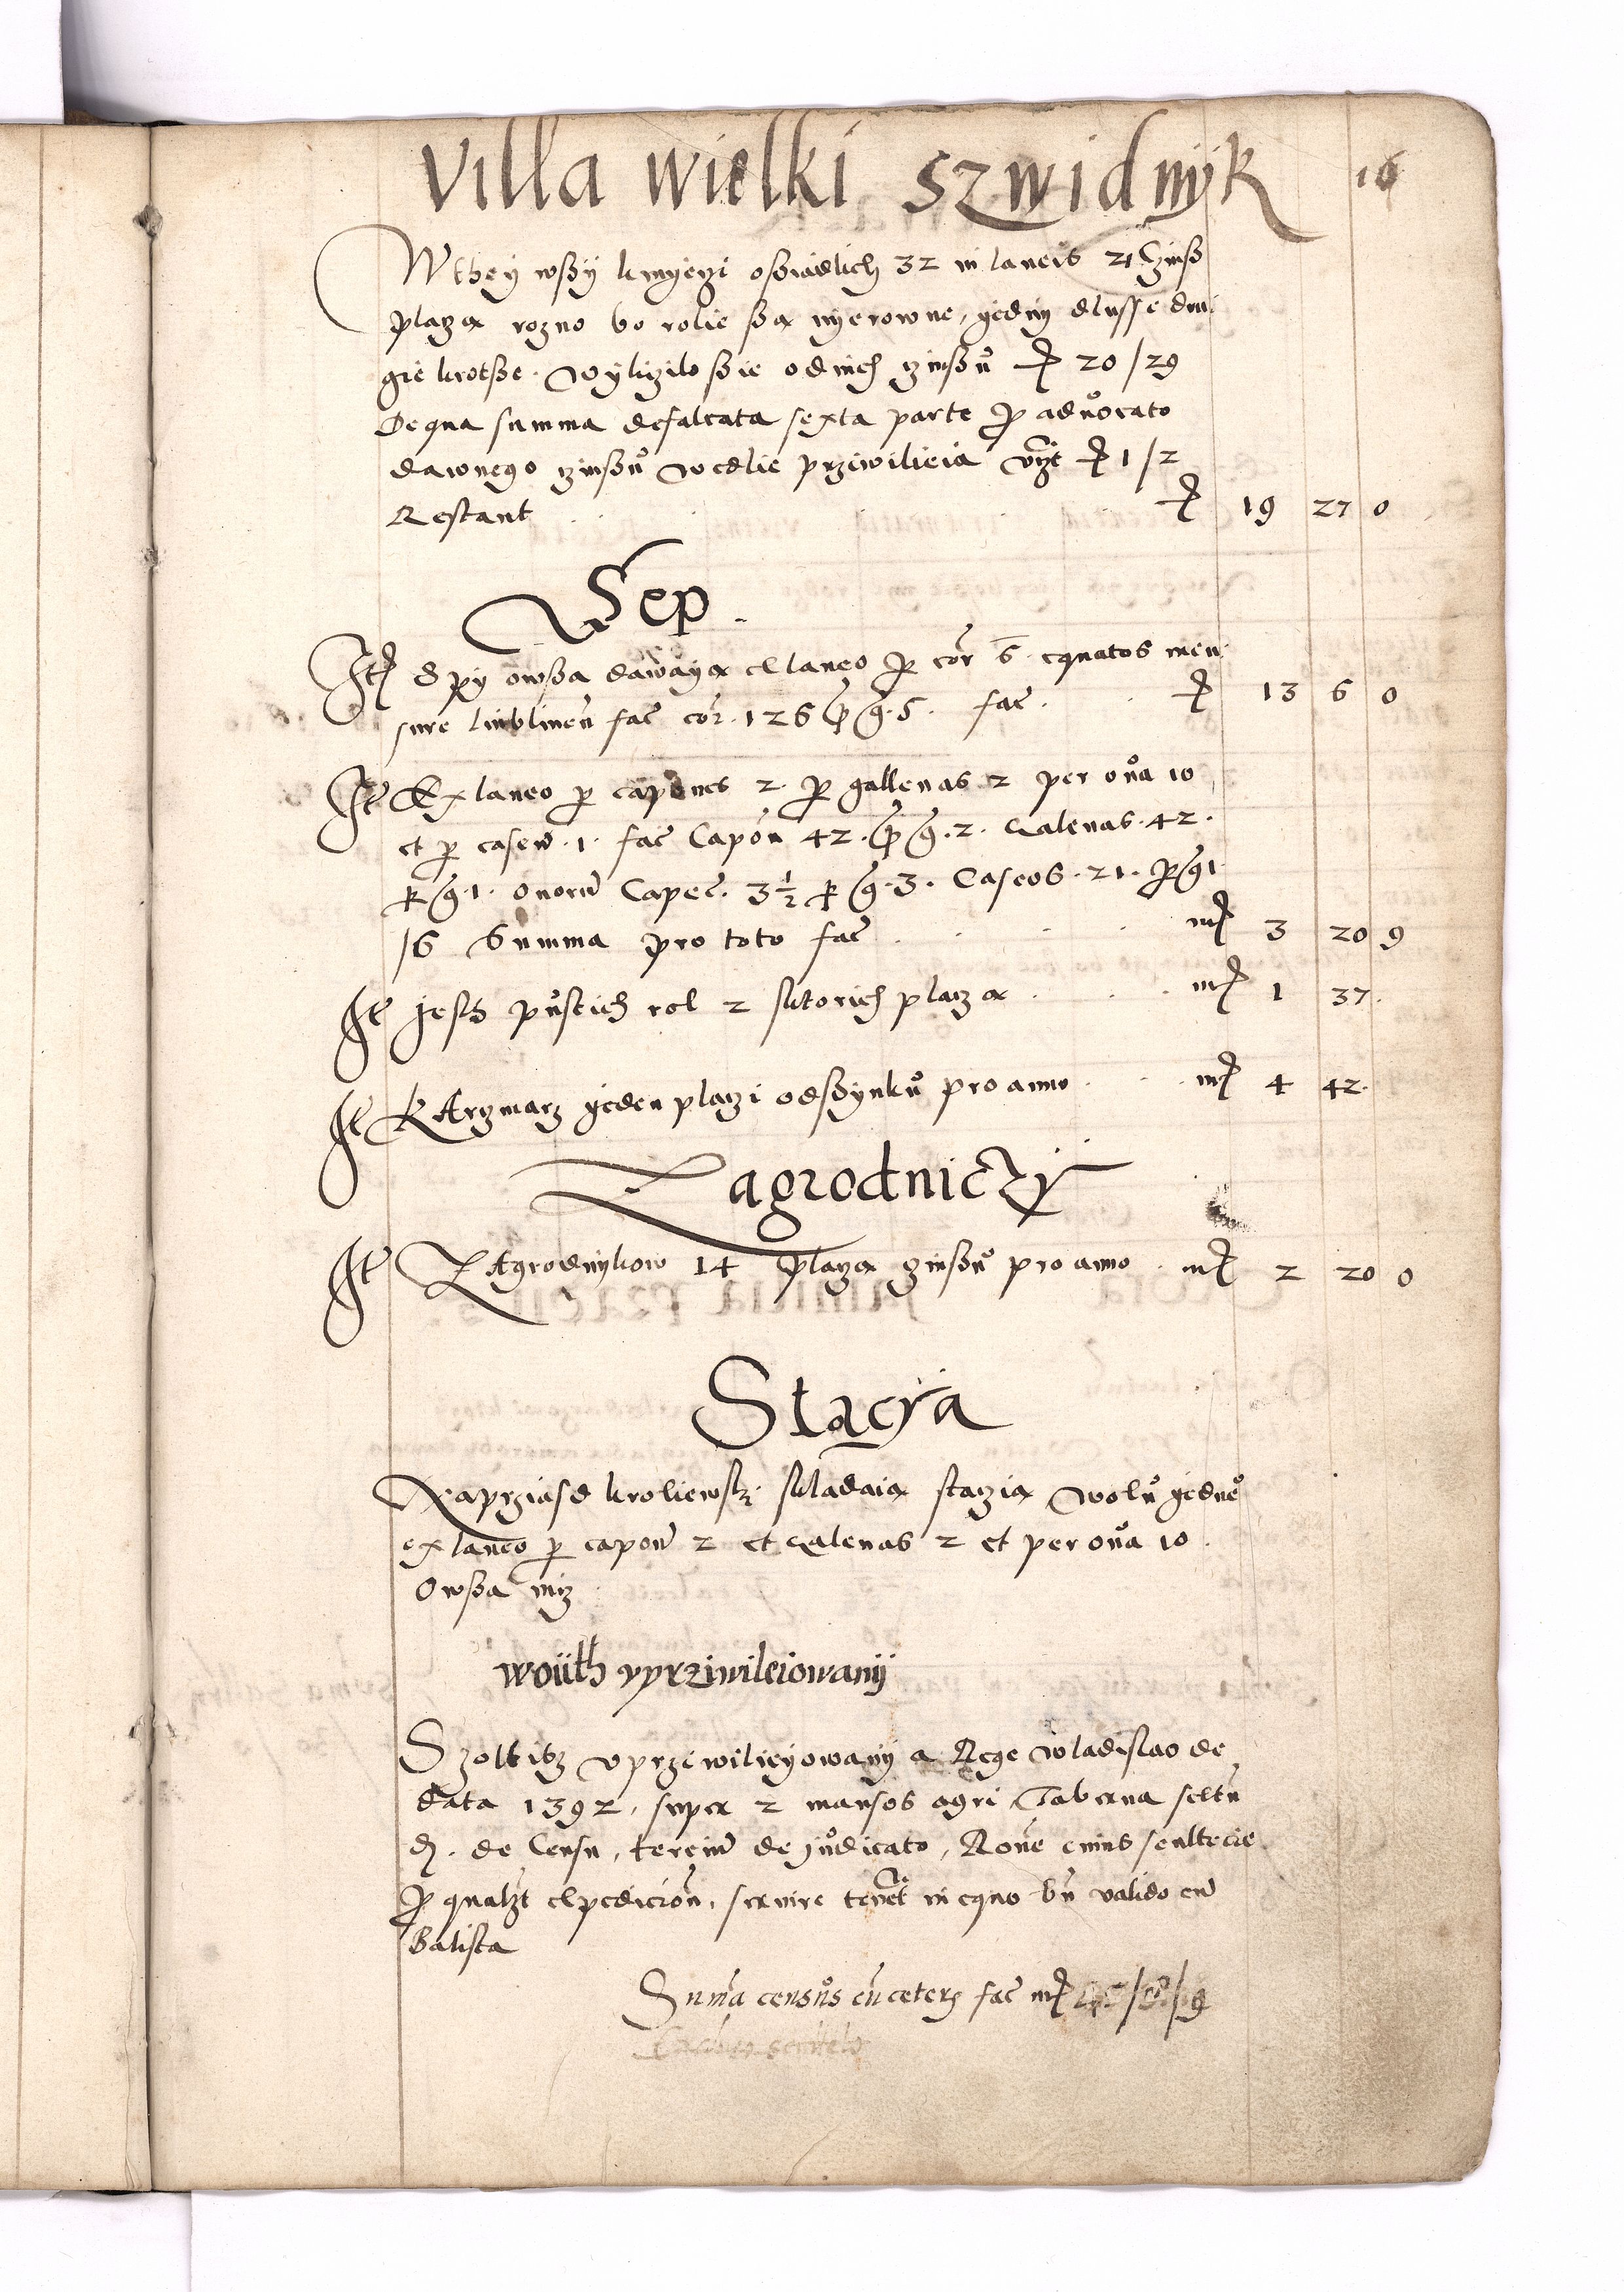 Villa wielki szwidnÿk 16
W theÿ wsßÿ kmyeczi oßiadlich 32 in laneis 21 Czinß
placza rozno bo rolie ßa nyerowne, gedny dlusse dru
gie krotße. Wyliczilo ßie od nich czinßu ꝑ 20/29
De qua summa defalcata sexta parte p advocato
dawnego czinßu wedlie prziwilieia vz̃t 1/2
Restant 19 27 0
Sep.
It Spy owßa dawaya ex laneo p cor̃ 6 equatos men
sure lublinen̄ fac̃ cor̃. 126 p g. 5. fac̃. 13 6 0
It Ex laneo p capones 2. p gallenas 2 per ova 10
et p caseū 1. fac̃ Capon̄ 42. p g. 2. Galenas. 42.
p g. 1. ovorū Capec̃. 3½ p g. 3. Caseos. 21. p g 1
/6 Summa pro toto fac̃ mr 3 20 9
It Jest pustich rol 2 ktorich placza mr 1 37.
It KArczmarz geden placzi od ßynku pro anno mr 4 42.
Zagrodniczy
It ZAgrodnykow 14 placza czinßu pro anno mr 2 20 0
Stacya
Na przjasd kroliewsk. skladaia staczia wolu gedne
ex laneo p capon̄ 2 et Galenas 2 et per ova 10
Owßa micz
woüth vprziwileiowanÿ
Szoltisz vprzewilieyowanÿ a Rege Wladislao de
data 1392, super 2 mansos agri Taberna sextū
đ. de Censu, terciū de judicato, Rone cuius scultecie
p qualzt expedicion̄, servire tenet in equo bn̄ valido cū
Balista
Summa census cū ceteris fac̃ mr